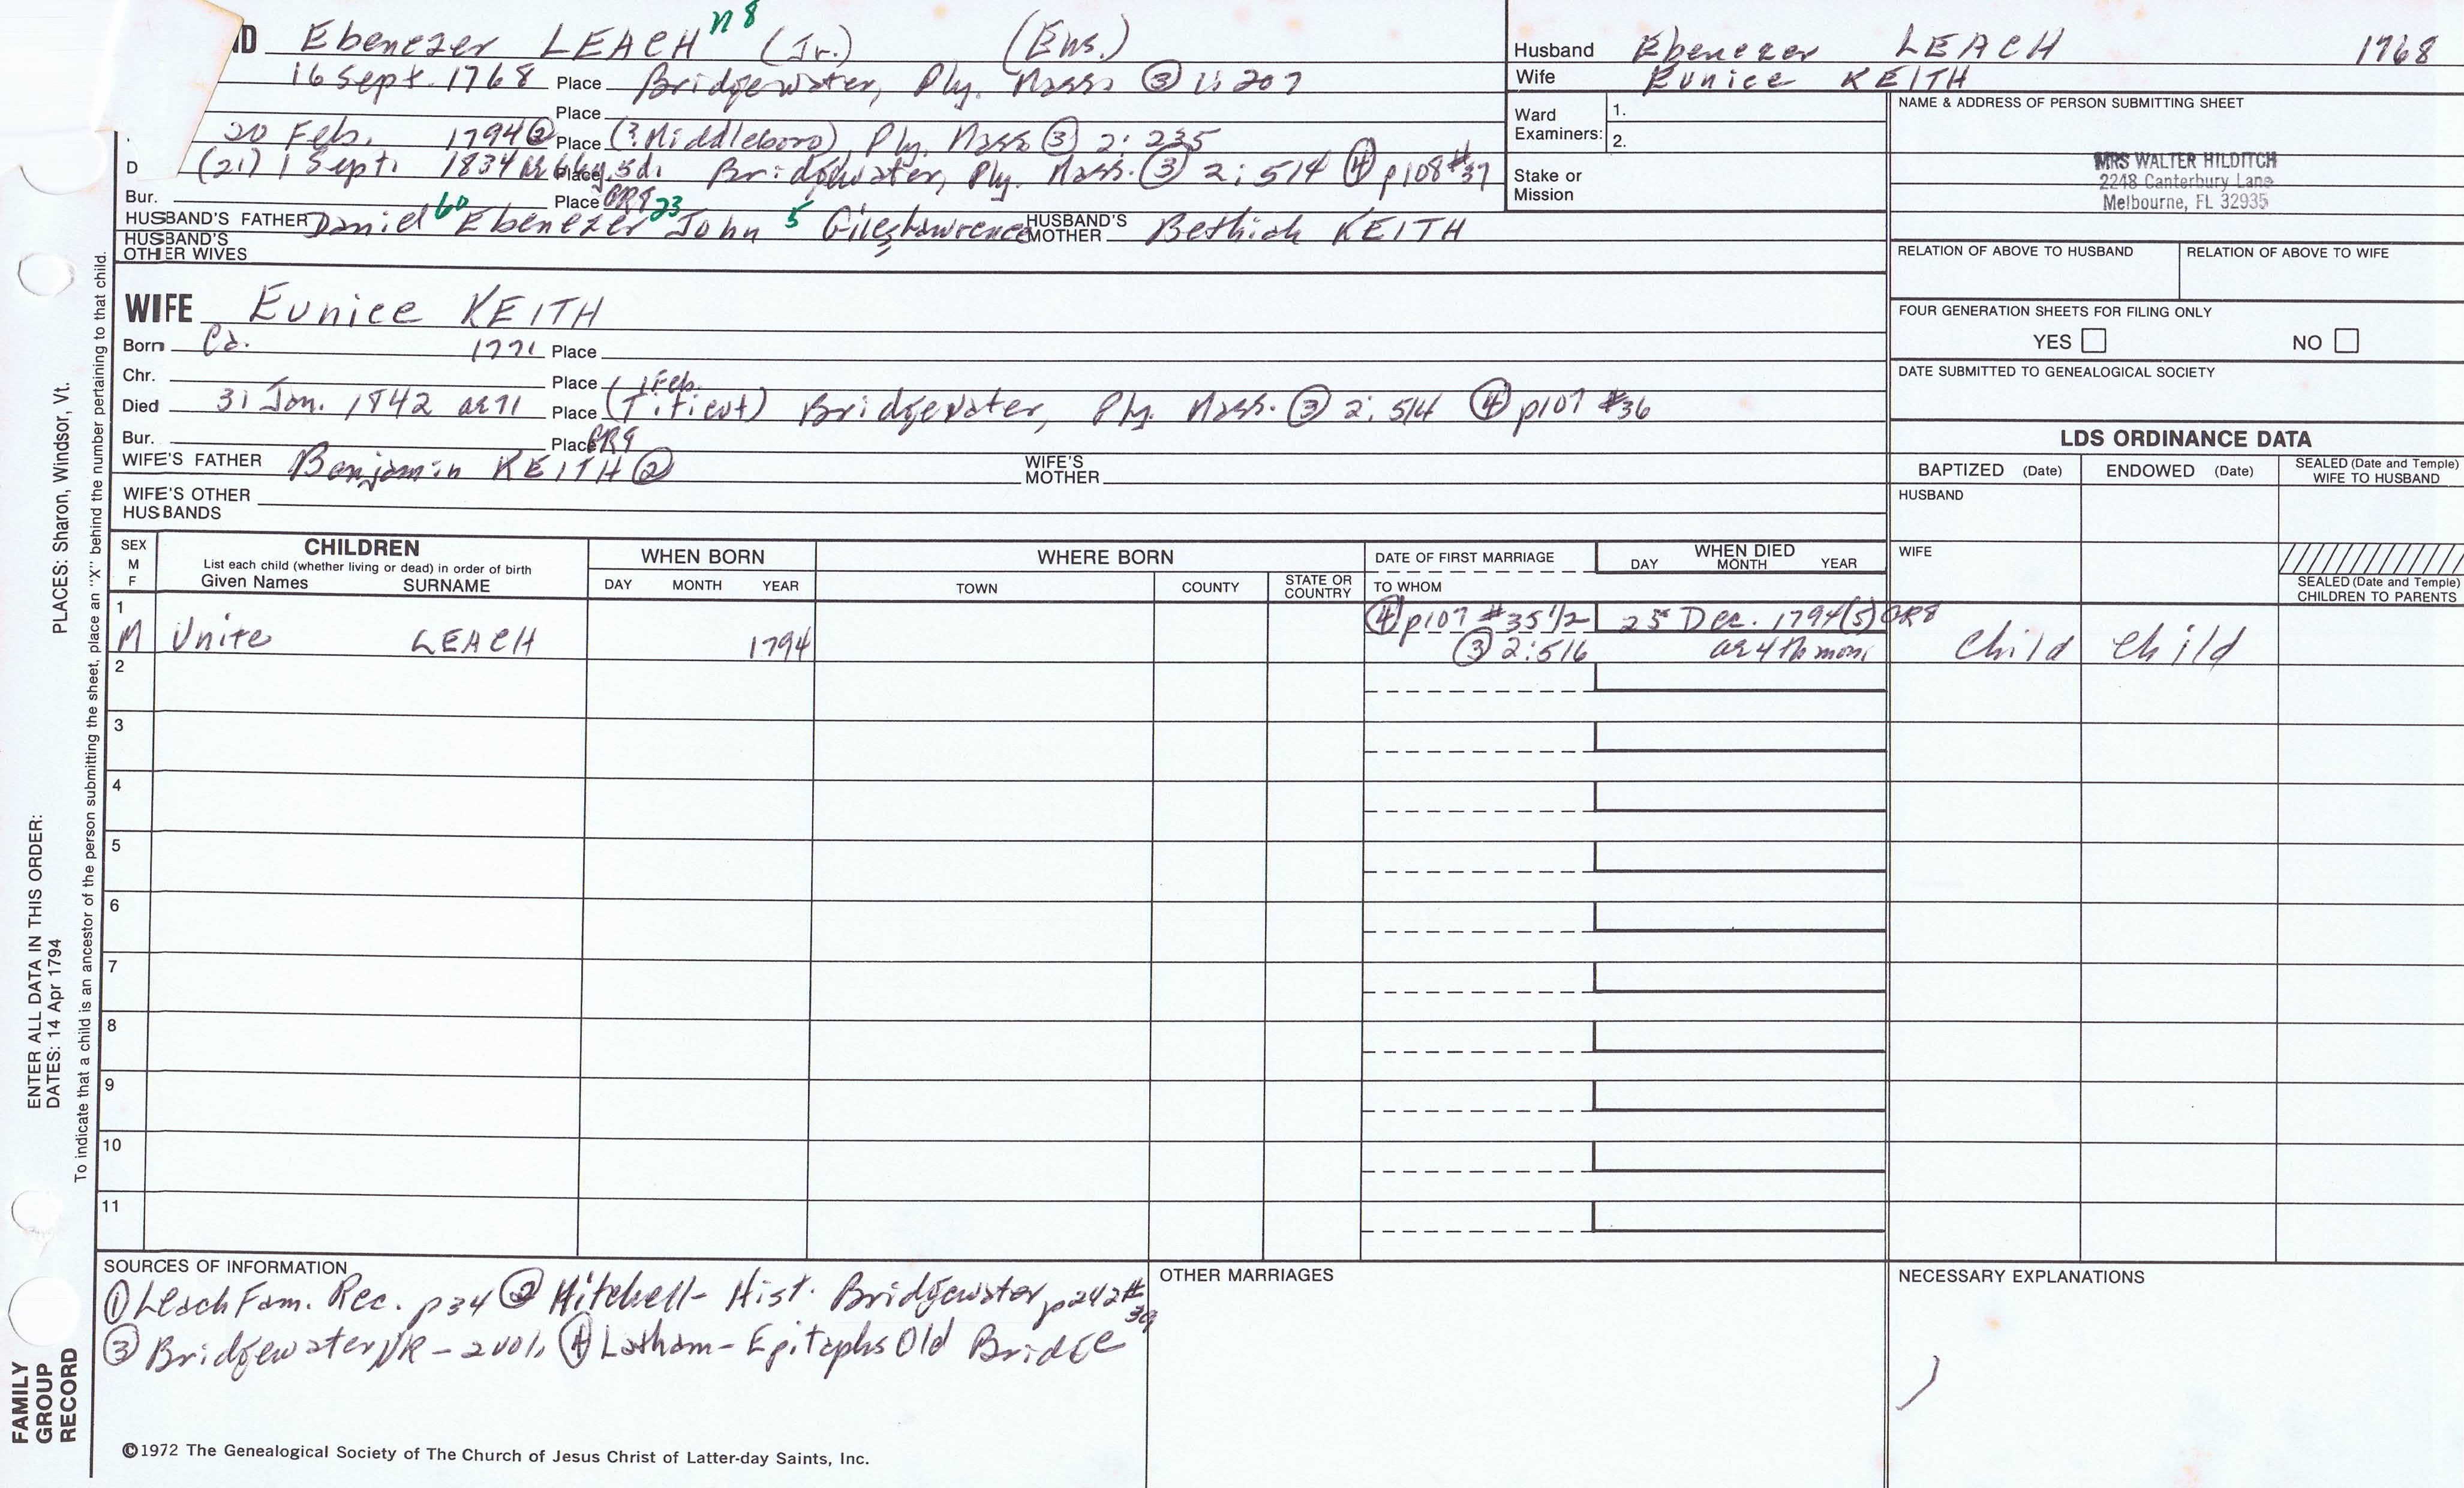 D Ebenezer LEACH n8 (Jr.) (Ens.)
16 Sept. 1768 Place Bridgewater, Ply. Mass ③ 1: 207
Place
20 Feb. 1794② Place (? Middleboro), Ply. Mass ③ 2: 235
D (21) 1 Sept. 1834 Place Bridgewater, Ply. Mass. ③ 2: 514 ④ p108 #37
Bur. Place
HUSBAND'S FATHER Daniel 60 Ebenezer 23 John 5 Giles Lawrence HUSBAND'S MOTHER Bethiah KEITH
HUSBAND'S OTHER WIVES
Husband Ebenezer LEACH 1768
Wife Eunice KEITH
Ward Examiners: 1.
2.
Stake or Mission
NAME & ADDRESS OF PERSON SUBMITTING SHEET
MRS WALTER HILDITCH
2248 Canterbury Lane
Melbourne, FL 32935
RELATION OF ABOVE TO HUSBAND RELATION OF ABOVE TO WIFE
FOUR GENERATION SHEETS FOR FILING ONLY
YES NO
DATE SUBMITTED TO GENEALOGICAL SOCIETY
WIFE Eunice KEITH
Born Ca. 1771 Place
Chr. Place
1 Feb.
Died 31 Jan. 1842 ae 71 Place (Titicut) Bridgewater, Ply. Mass. ③ 2: 514 ④ p107 #36
Bur. Place GR9
WIFE'S FATHER Benjamin KEITH ② WIFE'S MOTHER
WIFE'S OTHER HUSBANDS
LDS ORDINANCE DATA
BAPTIZED (Date) ENDOWED (Date) SEALED (Date and Temple) WIFE TO HUSBAND
HUSBAND
WIFE
SEALED (Date and Temple) CHILDREN TO PARENTS
SEX M F
CHILDREN
List each child (whether living or dead) in order of birth
Given Names SURNAME
WHEN BORN
DAY MONTH YEAR
WHERE BORN
TOWN COUNTY STATE OR COUNTRY
DATE OF FIRST MARRIAGE
TO WHOM
WHEN DIED
DAY MONTH YEAR
1 ④ p107 #35 1/2 25 Dec. 1794(5) GR8
M Unite LEACH 1794 ③ 2:516 ae 4th mon. Child Child
2
3
4
5
6
7
8
9
10
11
SOURCES OF INFORMATION
① Leach Fam. Rec. p34 ② Mitchell- Hist. Bridgewater p242 # 39
③ Bridgewater VR - 2 vol. ④ Latham - Epitaphs Old Bridge
OTHER MARRIAGES
NECESSARY EXPLANATIONS
©1972 The Genealogical Society of The Church of Jesus Christ of Latter-day Saints, Inc.
PLACES: Sharon, Windsor, Vt.
ENTER ALL DATA IN THIS ORDER:
DATES: 14 Apr 1794
To indicate that a child is an ancestor of the person submitting the sheet, place an "X" behind the number pertaining to that child.
FAMILY
GROUP
RECORD